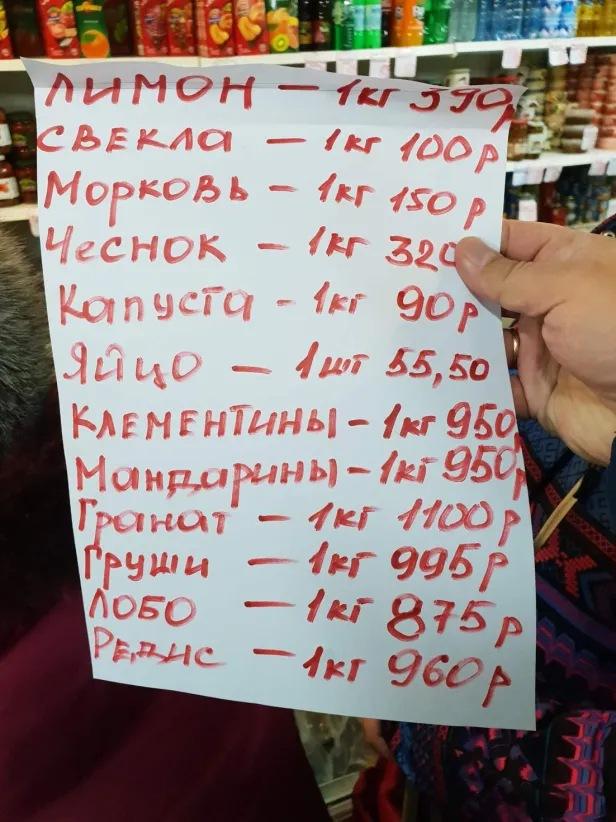 ЛИМОН — 1кг 390р
СВЕКЛА — 1кг 100р
Морковь — 1кг 150р
Чеснок — 1кг 320
Капуста - 1кг 90р
Яйцо — 1шт 55,50
КЛЕМЕНТИНЫ — 1кг 950
Мандарины — 1кг 950р
Гранат — 1кг 1100р
Груши — 1кг 995р
ЛОБО — 1кг 875р
Редис — 1кг 960р